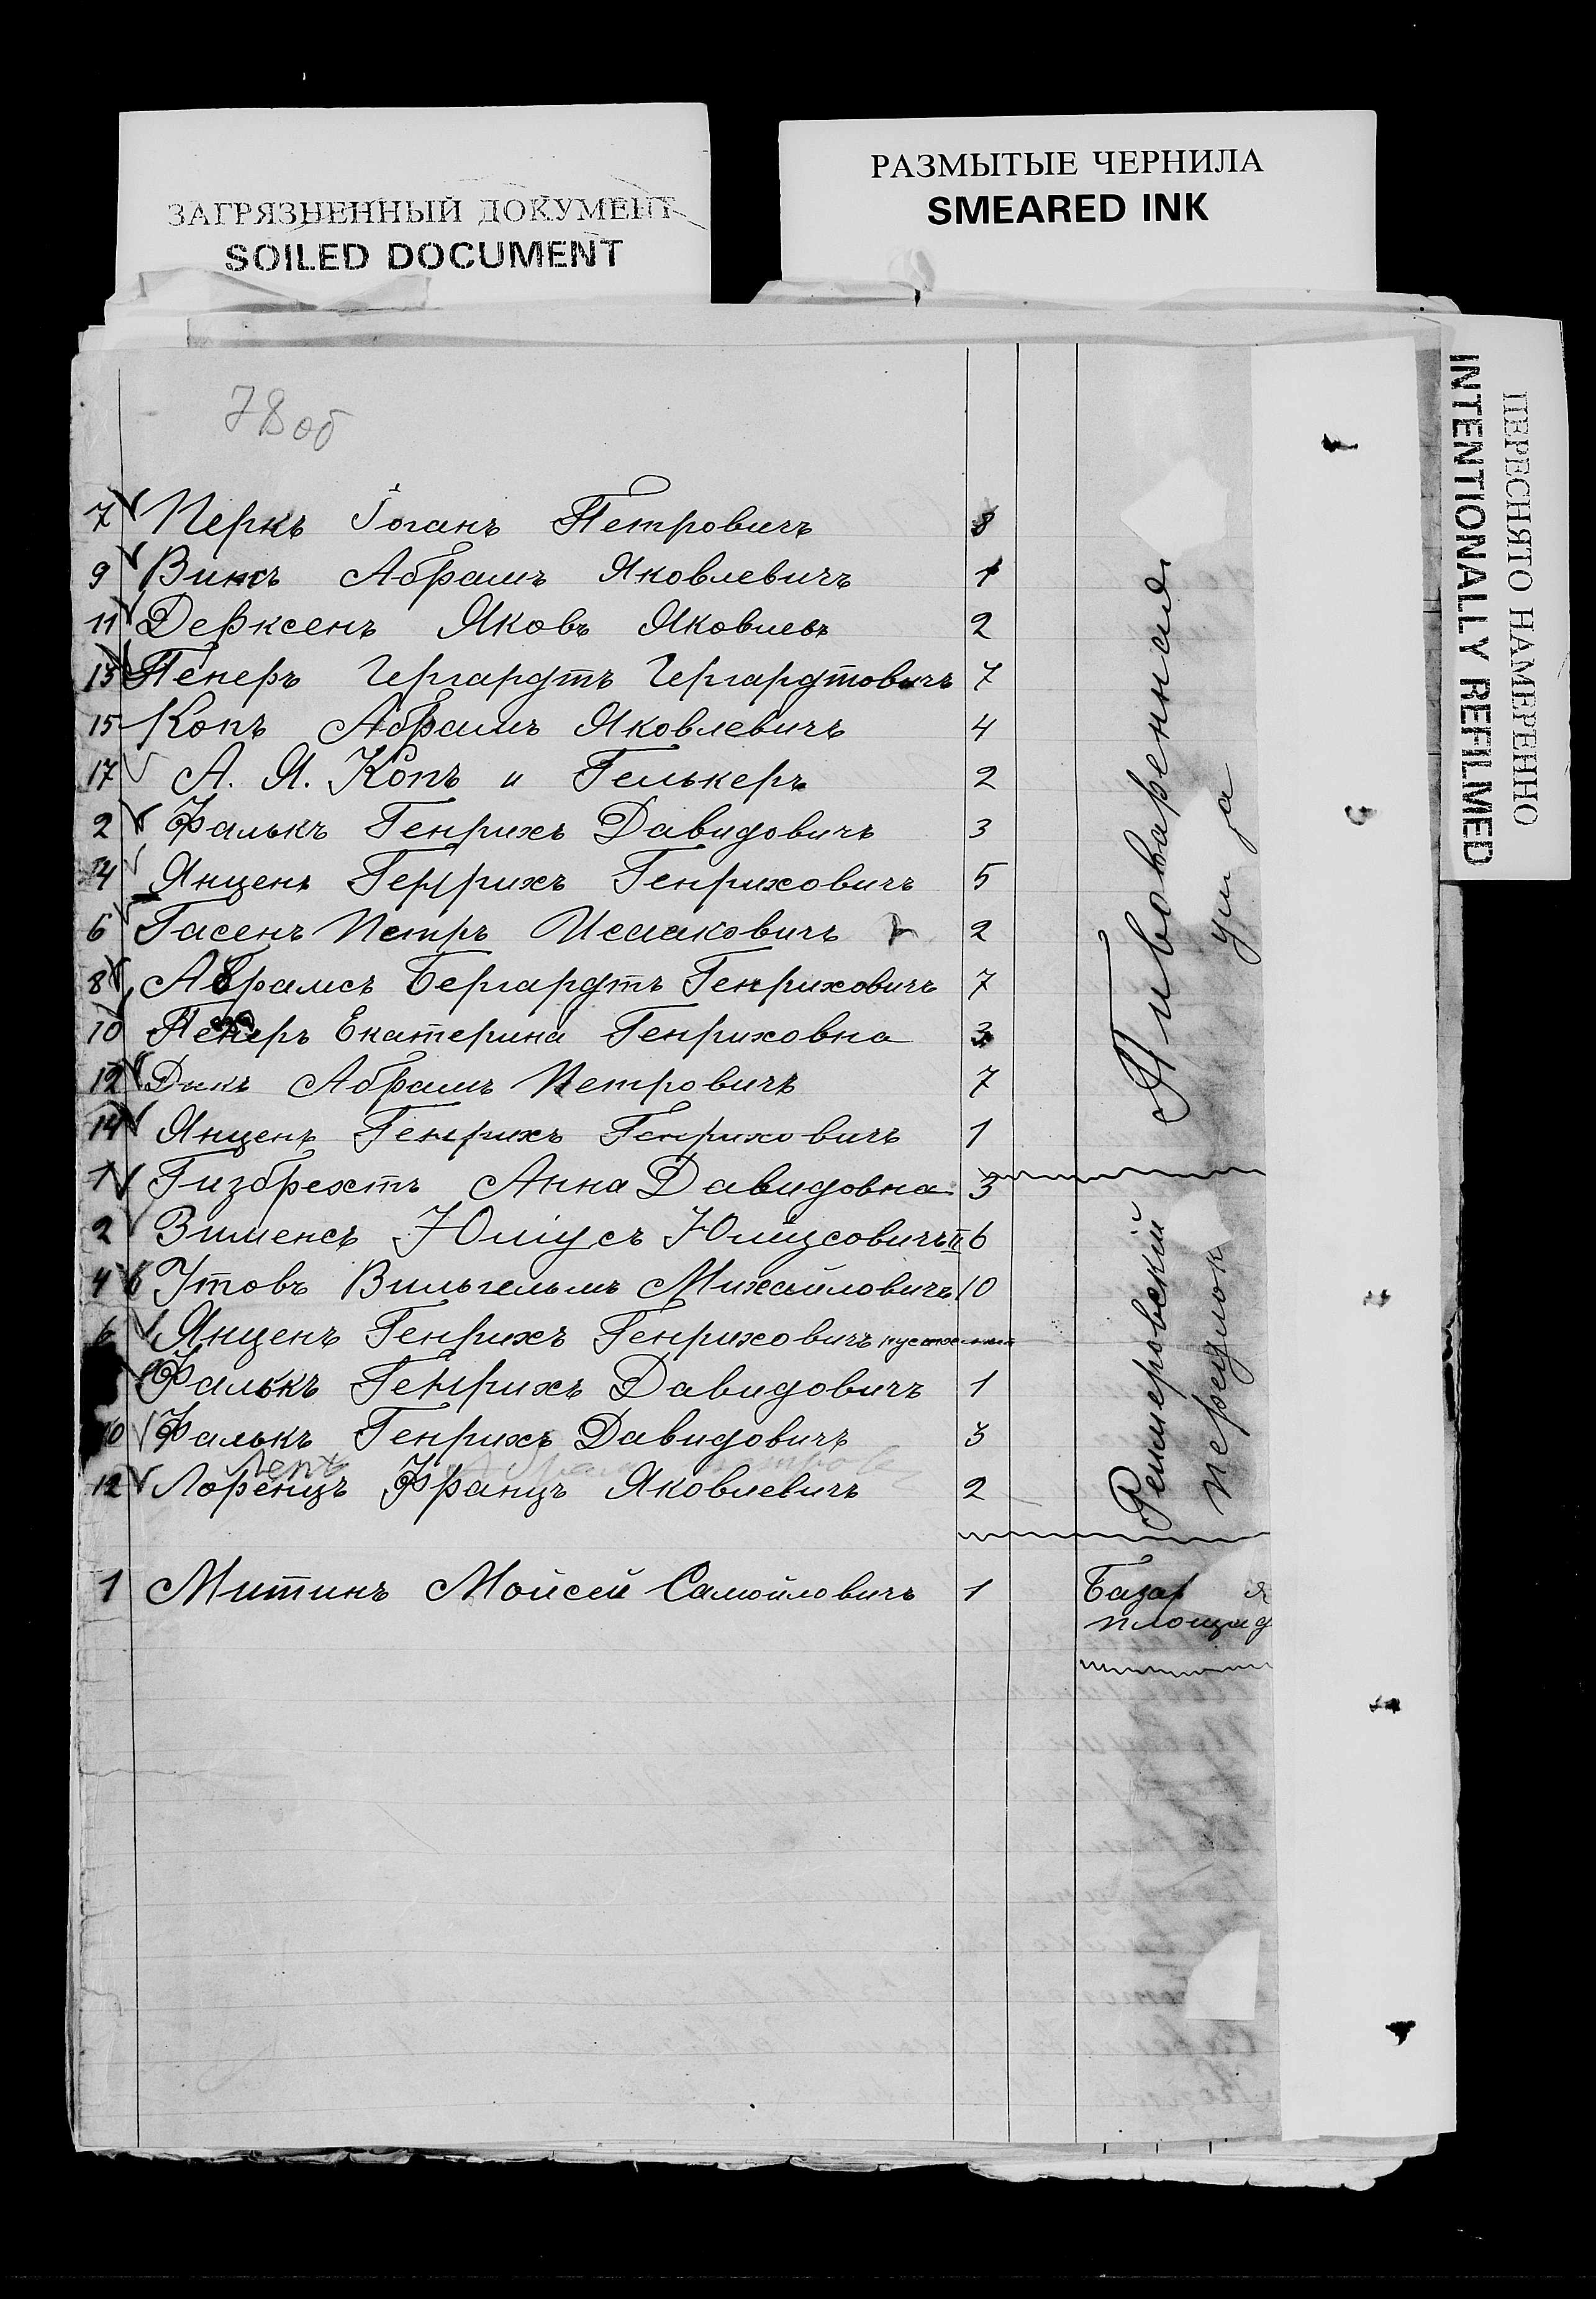 ЗАГРЯЗНЕННЫЙ ДОКУМЕНТ
SOILED DOCUMENT
РАЗМЫТЫЕ ЧЕРНИЛА
SMEARED INK
ПЕРЕСНЯТО НАМЕРЕННО
INTENTIONALLY REFILMED
78об
7 Перкъ Іоганъ Петровичъ 8
9 Винсъ Абрамъ Яковлевичъ 1
11 Дерксенъ Яковъ Яковлевъ 2
13 Пенеръ Гергардтъ Гергардтовичъ 7
15 Копъ Абрамъ Яковлевичъ 4
17 А. Я. Копъ и Гелькеръ 2
2 Фалькъ Генрихъ Давидовичъ 3
4 Янценъ Генрихъ Генриховичъ 5
6 Гасенъ Петръ Исааковичъ 2
8 Абрамсъ Бергардтъ Генриховичъ 7
10 Пенеръ Екатерина Генриховна 3
12 Дикъ Абрамъ Петровичъ 7
14 Янценъ Генрихъ Генриховичъ 1
Пивоваренная
ул а
1 Гизбрехтъ Анна Давидовна 3
2 Зименсъ Юліусъ Юліусовичъ II 6
4 Утовъ Вильгельмъ Михайловичъ 10
6 Янценъ Генрихъ Генриховичъ
Фалькъ Генрихъ Давидовичъ 1
10 Фалькъ Генрихъ Давидовичъ 3
12 Лоренцъ Францъ Яковлевичъ 2
переулок
1 Митинъ Мойсей Самойловичъ 1
Базар я
площад